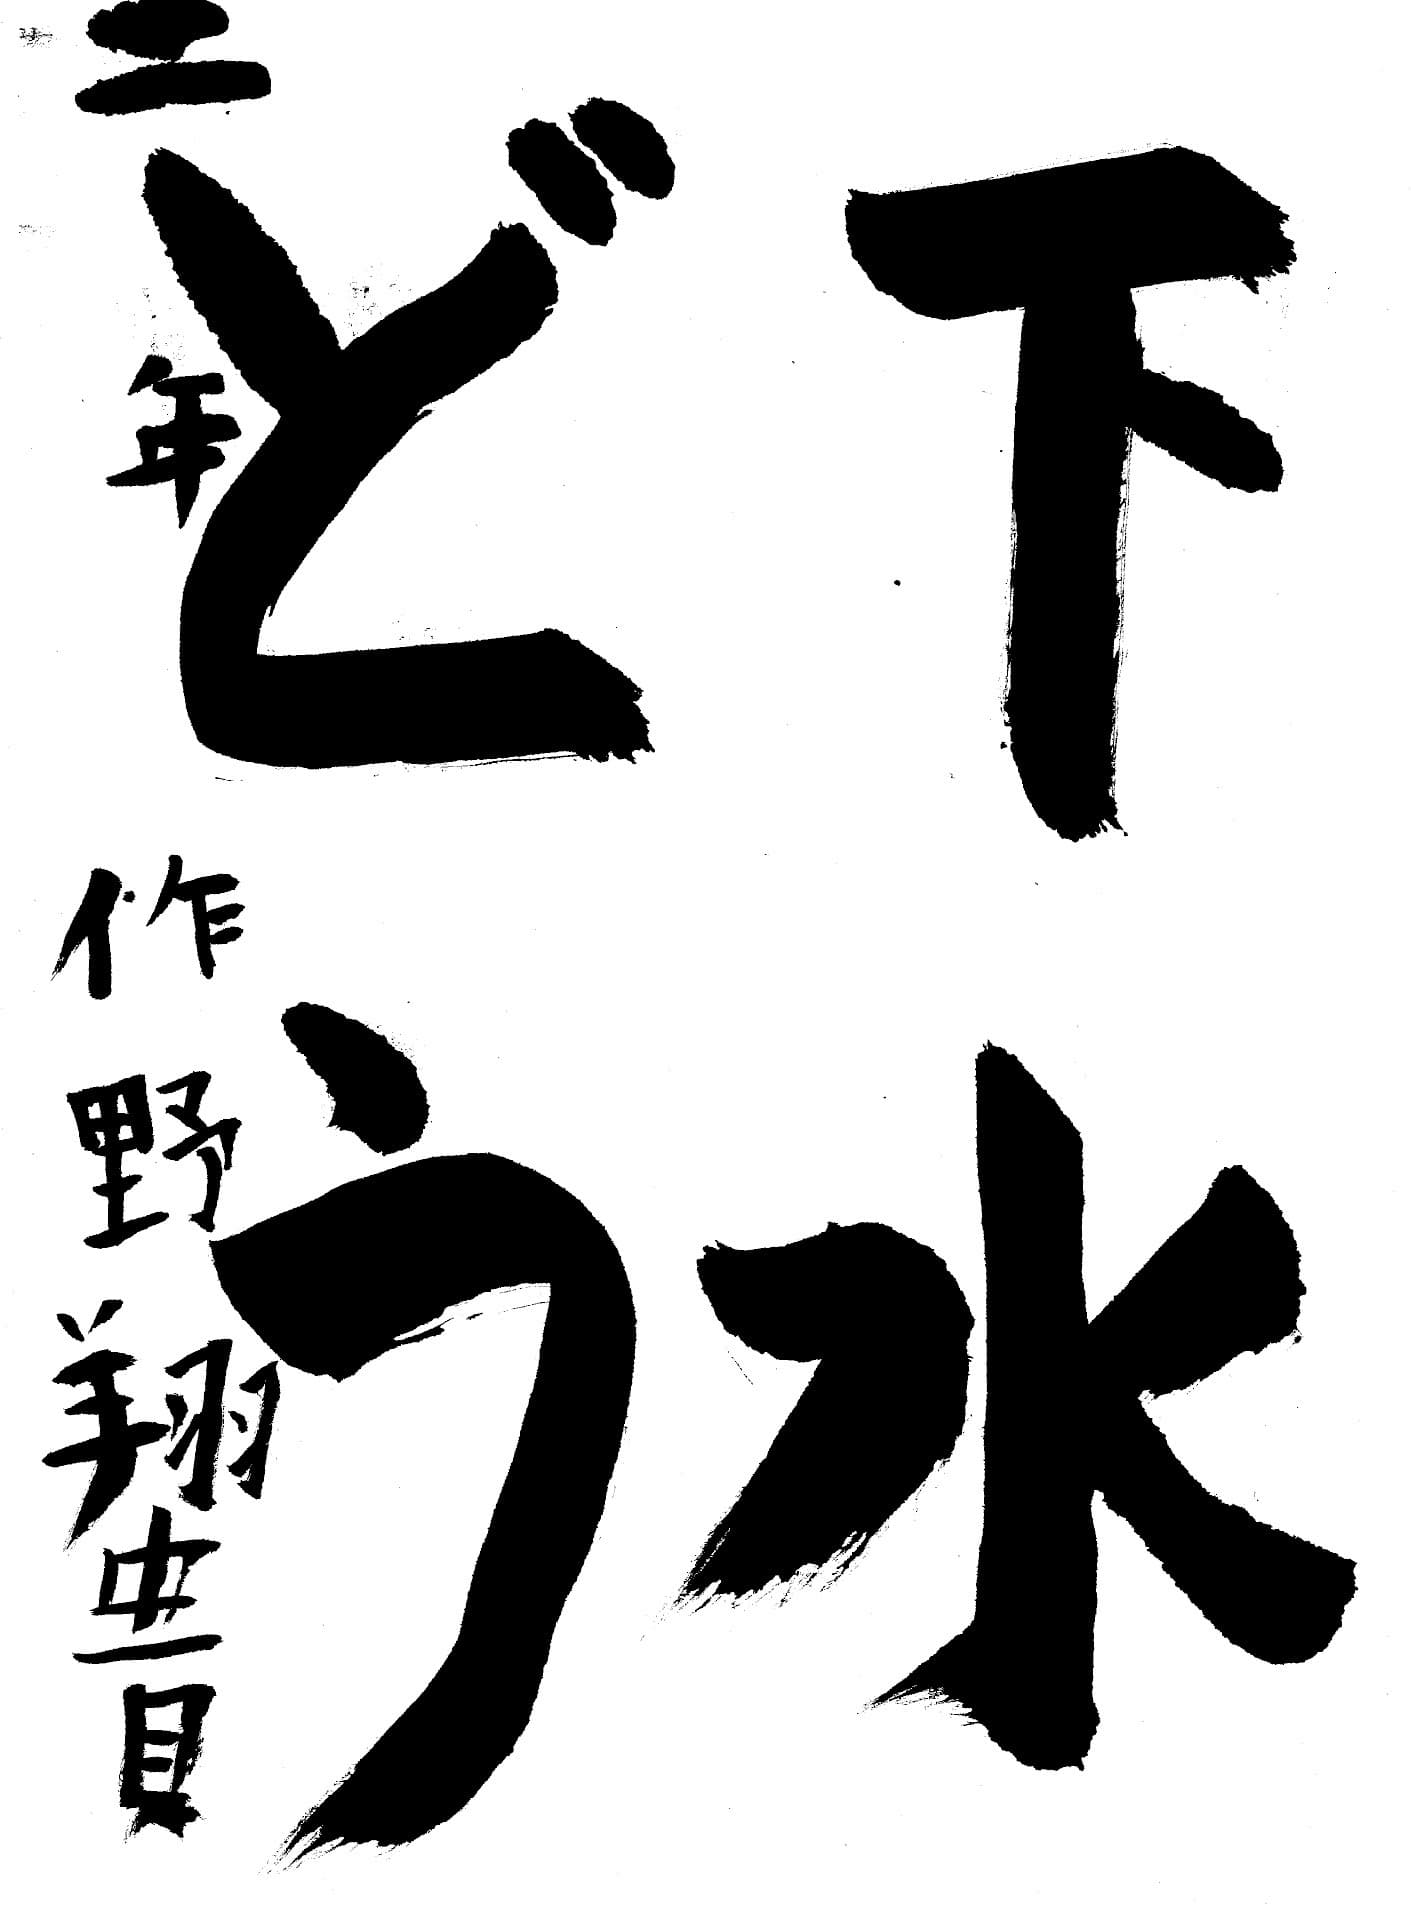 下水
どう
二年 作野翔貴